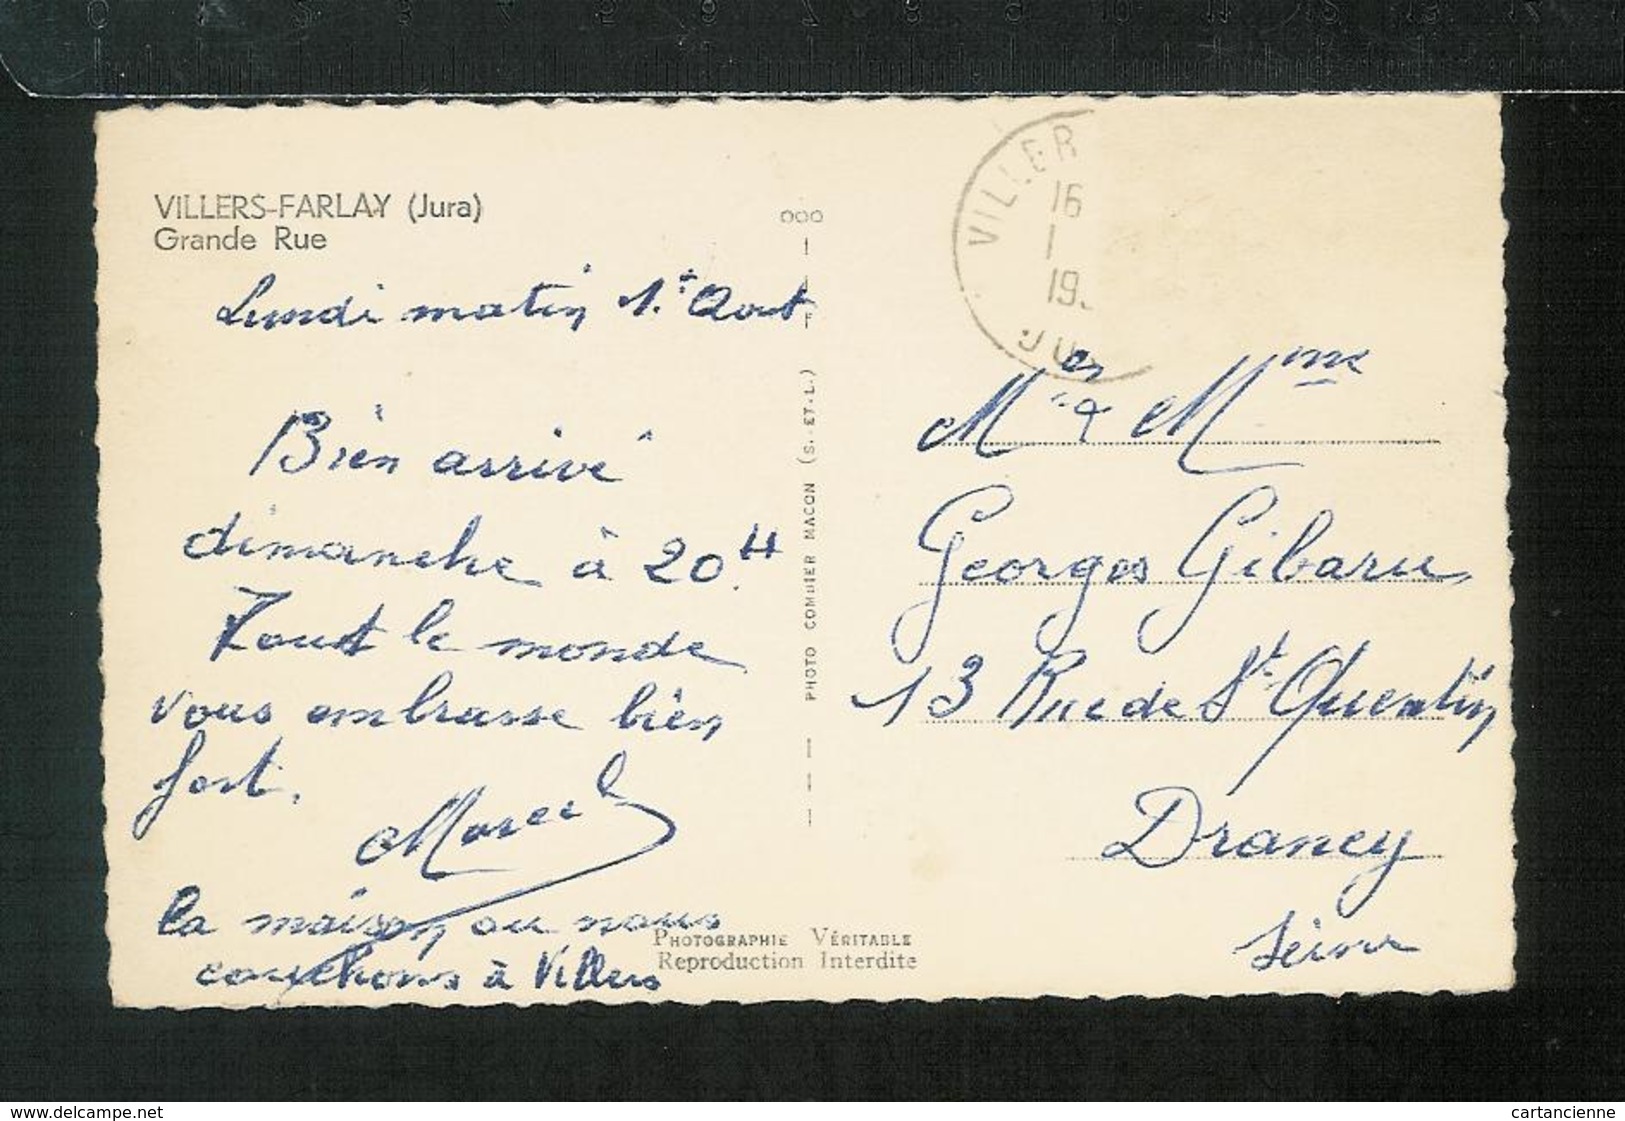 VILLERS-FARLAY (Jura)
Grande Rue
Lundi matin 1er Aout
Bien arrivé
dimanche à 20H
Tout le monde
vous embrasse bien
fort.
Marcel
la maison ou nous
couchons à Villers
PHOTO COMBIER MACON (S.-ET-L.)
PHOTOGRAPHIE VÉRITABLE
Reproduction Interdite
VILLER
16
1
19
JU
Mr & Mme
Georges Gibaru
13 Rue de St Quentin
Drancy
Seine
www.delcampe.net
cartancienne